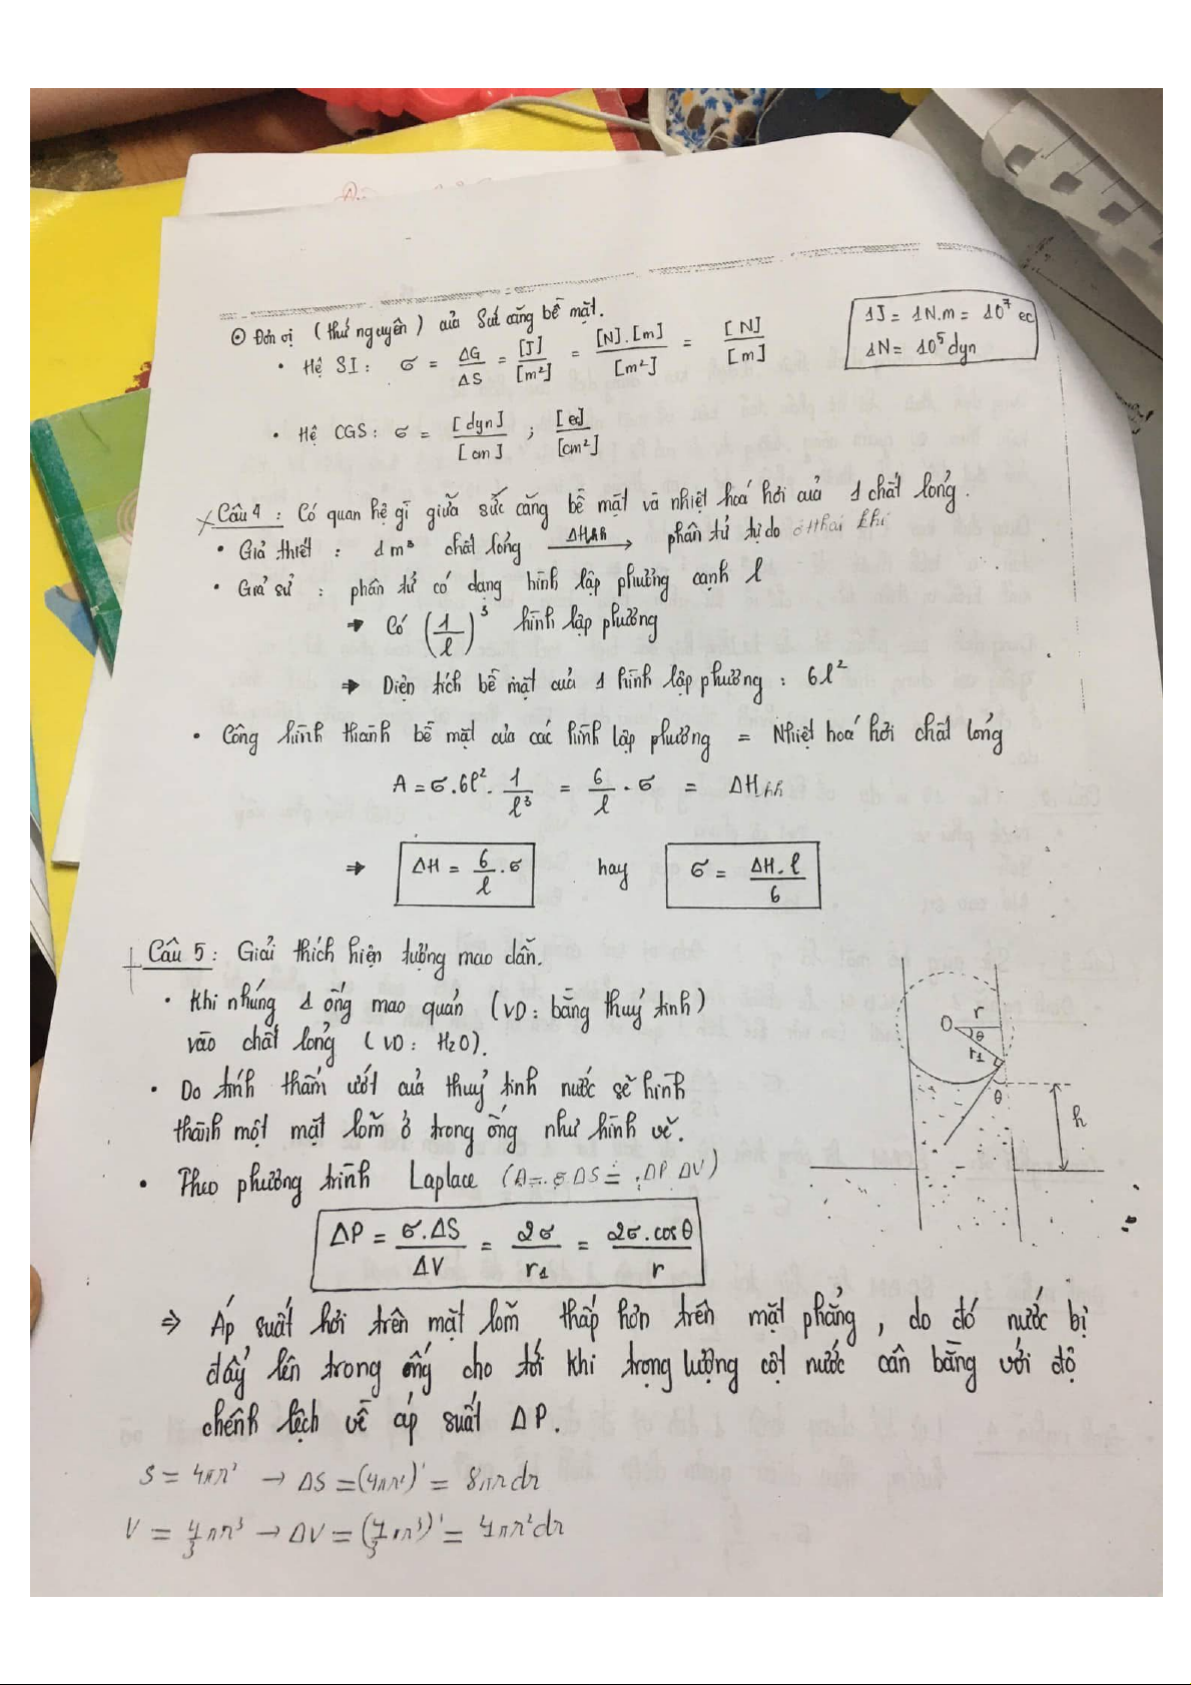 ⊙ Đơn vị (thứ nguyên) của Sức căng bề mặt.
1J = 1N.m = 10⁷ ec
1N = 10⁵ dyn
• Hệ SI : σ = ΔG/ΔS = [J]/[m²] = [N].[m]/[m²] = [N]/[m]
• Hệ CGS : σ = [dyn]/[cm] ; [ec]/[cm²]
Câu 4 : Có quan hệ gì giữa sức căng bề mặt và nhiệt hoá hơi của 1 chất lỏng.
• Giả thiết : 1 m³ chất lỏng ΔHhh → phân tử tự do ở thái khí
• Giả sử : phân tử có dạng hình lập phương cạnh l
→ Có (1/l)³ hình lập phương
⇒ Diện tích bề mặt của 1 hình lập phương : 6l²
• Công hình thành bề mặt của các hình lập phương = Nhiệt hoá hơi chất lỏng
A = σ.6l². 1/l³ = 6/l . σ = ΔHhh
⇒ ΔH = 6/l . σ hay σ = ΔH.l/6
Câu 5 : Giải thích hiện tượng mao dẫn.
• Khi nhúng 1 ống mao quản (VD : bằng thuỷ tinh)
vào chất lỏng (VD : H₂O).
• Do tính thấm ướt của thuỷ tinh nước sẽ hình
thành một mặt lõm ở trong ống như hình vẽ.
• Theo phương trình Laplace (A = σ ΔS = ΔP ΔV)
ΔP = σ.ΔS/ΔV = 2σ/r₁ = 2σ.cosθ/r
O r θ r₁
θ
h
⇒ Áp suất hơi trên mặt lõm thấp hơn trên mặt phẳng , do đó nước bị
đẩy lên trong ống cho tới khi trọng lượng cột nước cân bằng với độ
chênh lệch về áp suất ΔP.
S = 4πr² → ΔS = (4πr²)' = 8πrdr
V = 4/3 πr³ → ΔV = (4/3 πr³)' = 4πr²dr